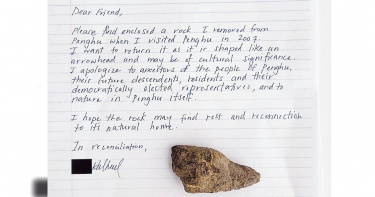 Dear Friend,
Please find enclosed a rock I removed from
Penghu when I visited Penghu in 2007.
I want to return it as it is shaped like an
arrowhead and may be of cultural significance.
I apologize to ancestors of the people of Penghu,
their future descendents, residents and their
democratically elected representatives, and to
nature in Penghu itself.
I hope the rock may find rest and reconnection
to its natural home.
In reconciliation,